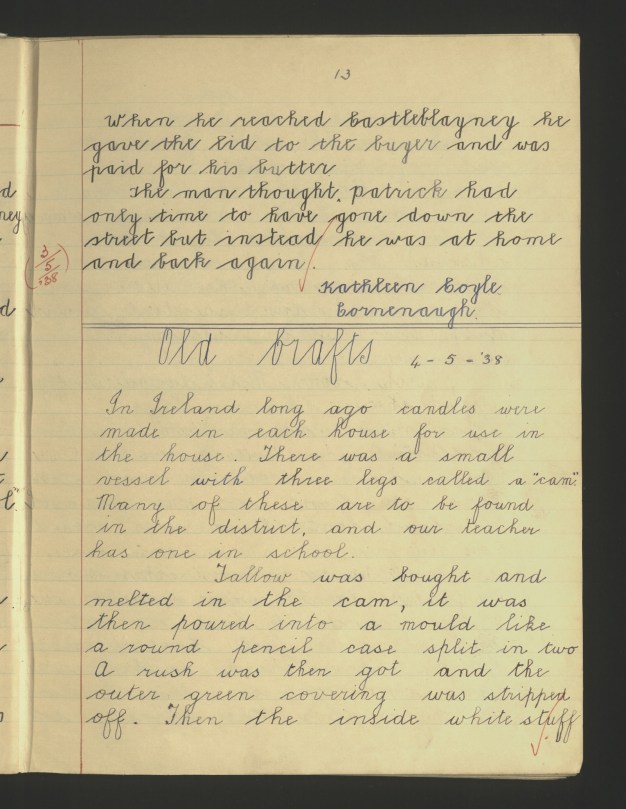 13
When he reached Castleblayney he
gave the lid to the buyer and was
paid for his butter
The man thought, Patrick had
only time to have gone down the
street but instead he was at home
and back again.
Kathleen Coyle.
Cornenaugh.
3
5
38
Old Crafts 4-5-'38
In Ireland long ago candles were
made in each house for use in
the house. There was a small
vessel with three legs called a "cam".
Many of these are to be found
in the district, and our teacher
has one in school.
Tallow was bought and
melted in the cam, it was
then poured into a mould like
a round pencil case split in two
A rush was then got and the
outer green covering was stripped
off. Then the inside white stuff